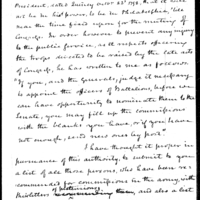 President, dated Quincy October 23d 1798. As it will
not be in his power, to be in Philadelphia, 'till
near the time fixed upon for the meeting of
Congress. In order however to prevent any injury
to the public service, as it respects officering
the troops directed to be raised by the late acts
of Congress, he has written to me as follows
"If you, and the generals, judge it necessary
to appoint the officers of Battalions, before we
can have opportunity to nominate them to the
Senate, you may fill up the commissions
with the blanks you have, or, if you have
not enough, send new ones by post."
I have thought it proper in
pursuance of this authority, to submit to you
a list of all those persons, who have been re-
commended for commissions in the army, with
testimony,
and also a list